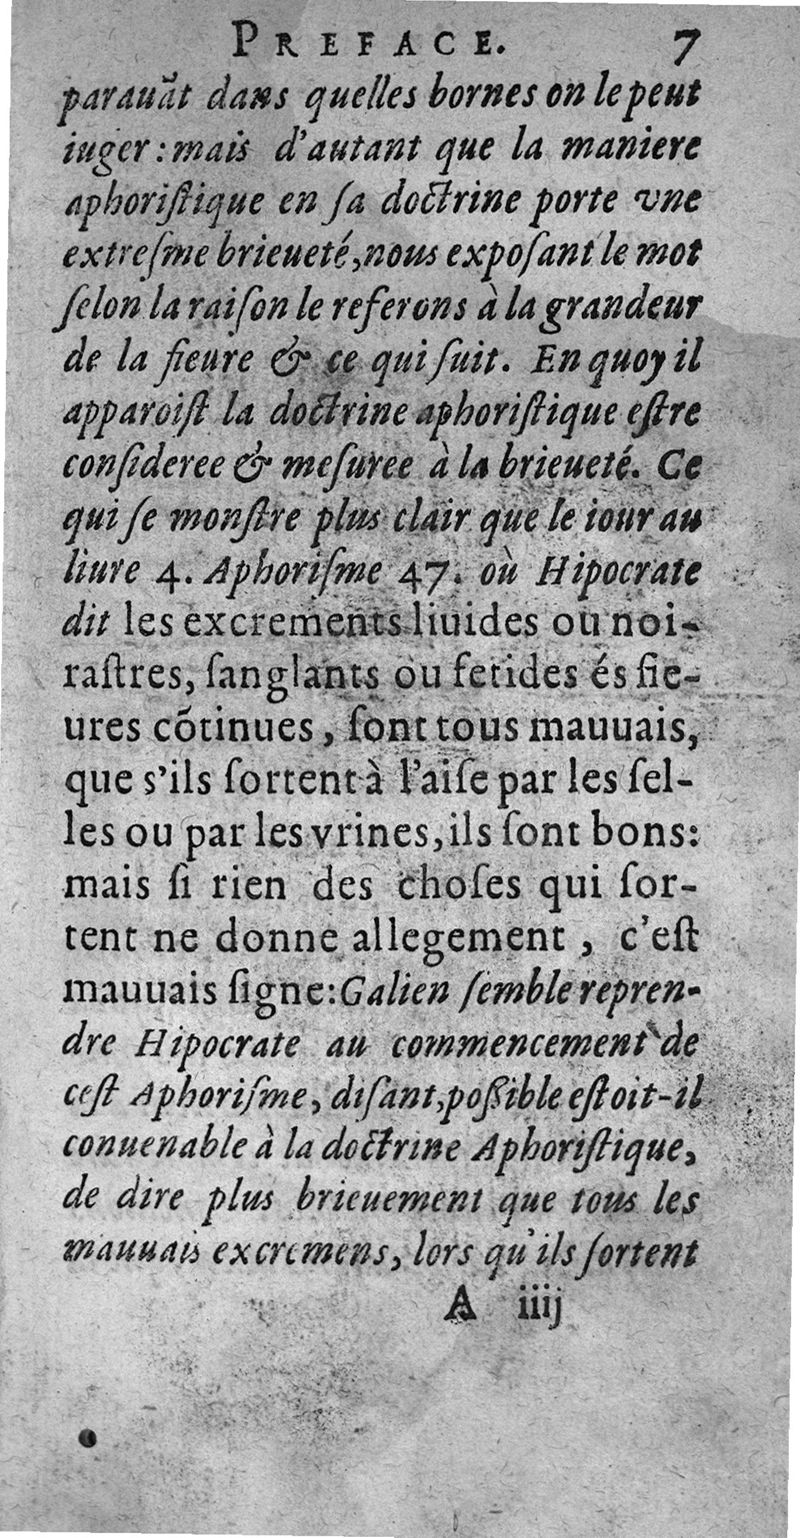 PREFACE. 7
parauãt dans quelles bornes on le peut
iuger: mais d'autant que la maniere
aphoriſtique en ſa doctrine porte vne
extreſme brieueté, nous expoſant le mot
ſelon la raiſon le referons à la grandeur
de la fieure & ce qui ſuit. En quoy il
apparoiſt la doctrine aphoriſtique eſtre
conſideree & meſuree à la brieueté. Ce
qui ſe monſtre plus clair que le iour au
liure 4. Aphoriſme 47. où Hipocrate
dit les excrements liuides ou noi-
raſtres, ſanglants ou fetides és fie-
ures cõtinues, ſont tous mauuais,
que s'ils ſortent à l'aiſe par les ſel-
les ou par les vrines, ils ſont bons:
mais ſi rien des choſes qui ſor-
tent ne donne allegement, c'eſt
mauuais ſigne: Galien ſemble repren-
dre Hipocrate au commencement de
ceſt Aphoriſme, diſant, poſſible eſtoit-il
conuenable à la doctrine Aphoriſtique,
de dire plus brieuement que tous les
mauuais excremens, lors qu'ils ſortent
A iiij